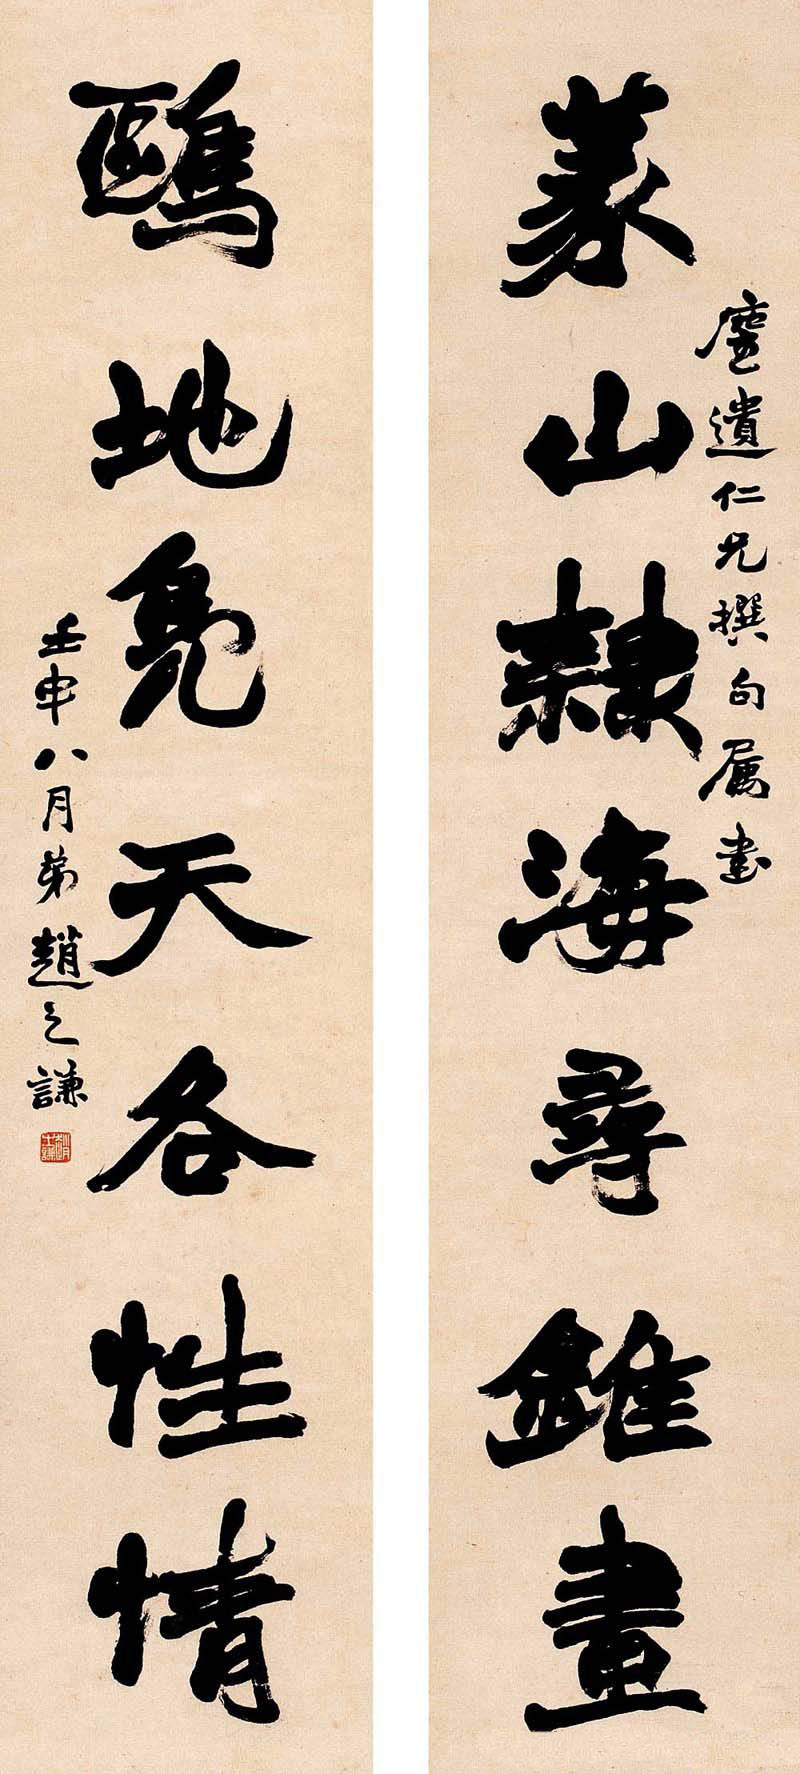 塵遺仁兄撰句屬書
篆山隸海尋錐畫
鷗地鳧天各性情
壬申八月弟趙之謙
趙之謙